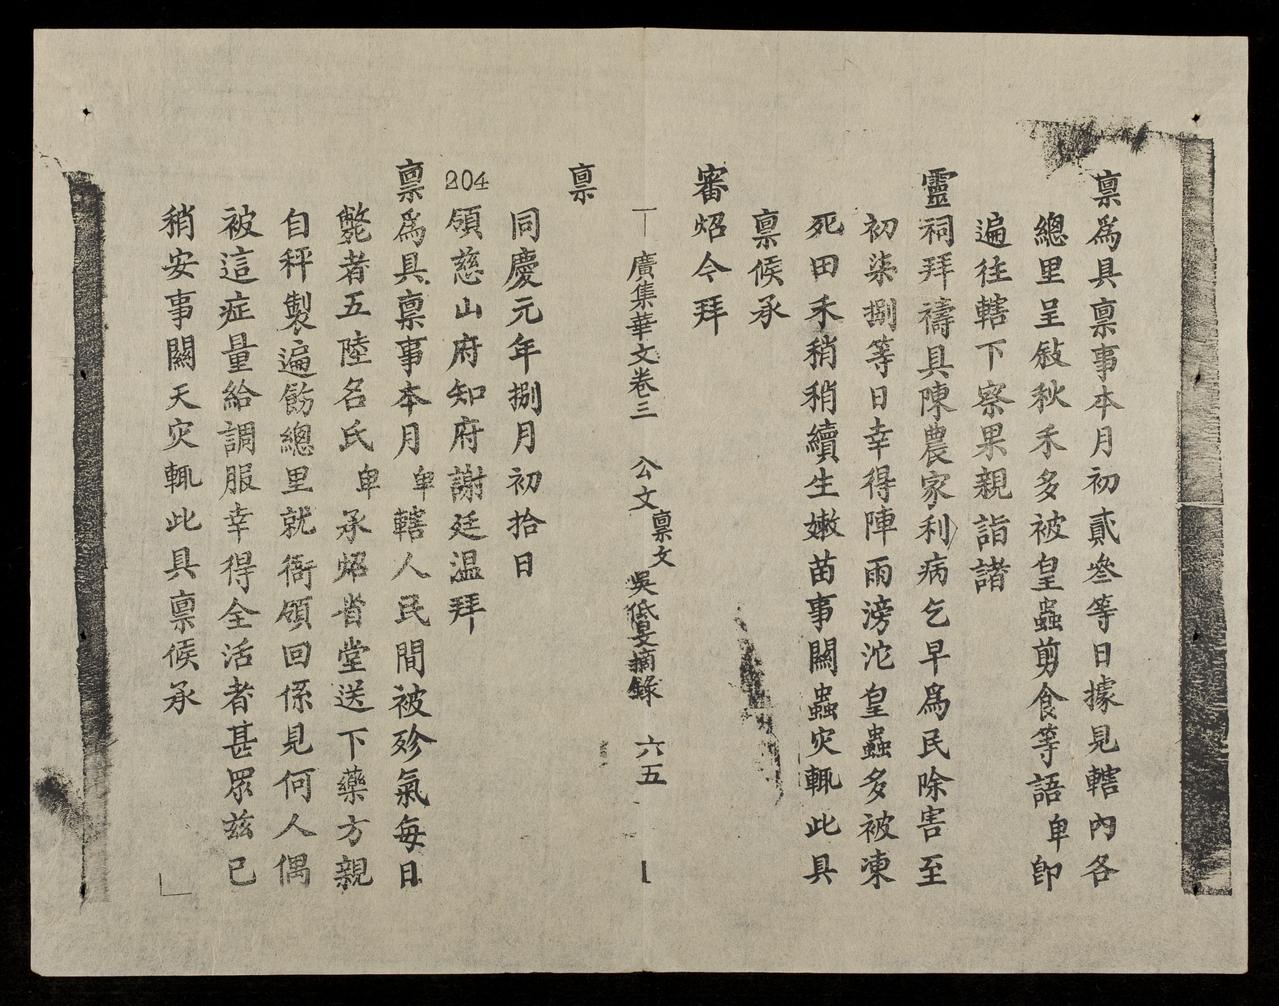 禀爲具禀事本月初貳叄等日據見轄內各
總里呈敍秋禾多被皇蟲剪食等語卑卽
遍往轄下察果親詣諸
靈祠拜禱具陳農家利病乞早爲民除害至
初柒捌等日幸得陣雨滂沱皇蟲多被凍
死田禾稍稍續生嫩苗事關蟲灾輒此具
禀候承
審炤今拜
廣集華文卷三 公文禀文 吳低旻摘錄 六五
禀
同慶元年捌月初拾日
204 領慈山府知府謝廷温拜
禀爲具禀事本月卑轄人民間被殄氣每日
斃者五陸名氏卑承炤省堂送下藥方親
自秤製遍飭總里就衙領回係見何人偶
被這症量給調服幸得全活者甚眾茲已
稍安事關天灾輒此具禀候承